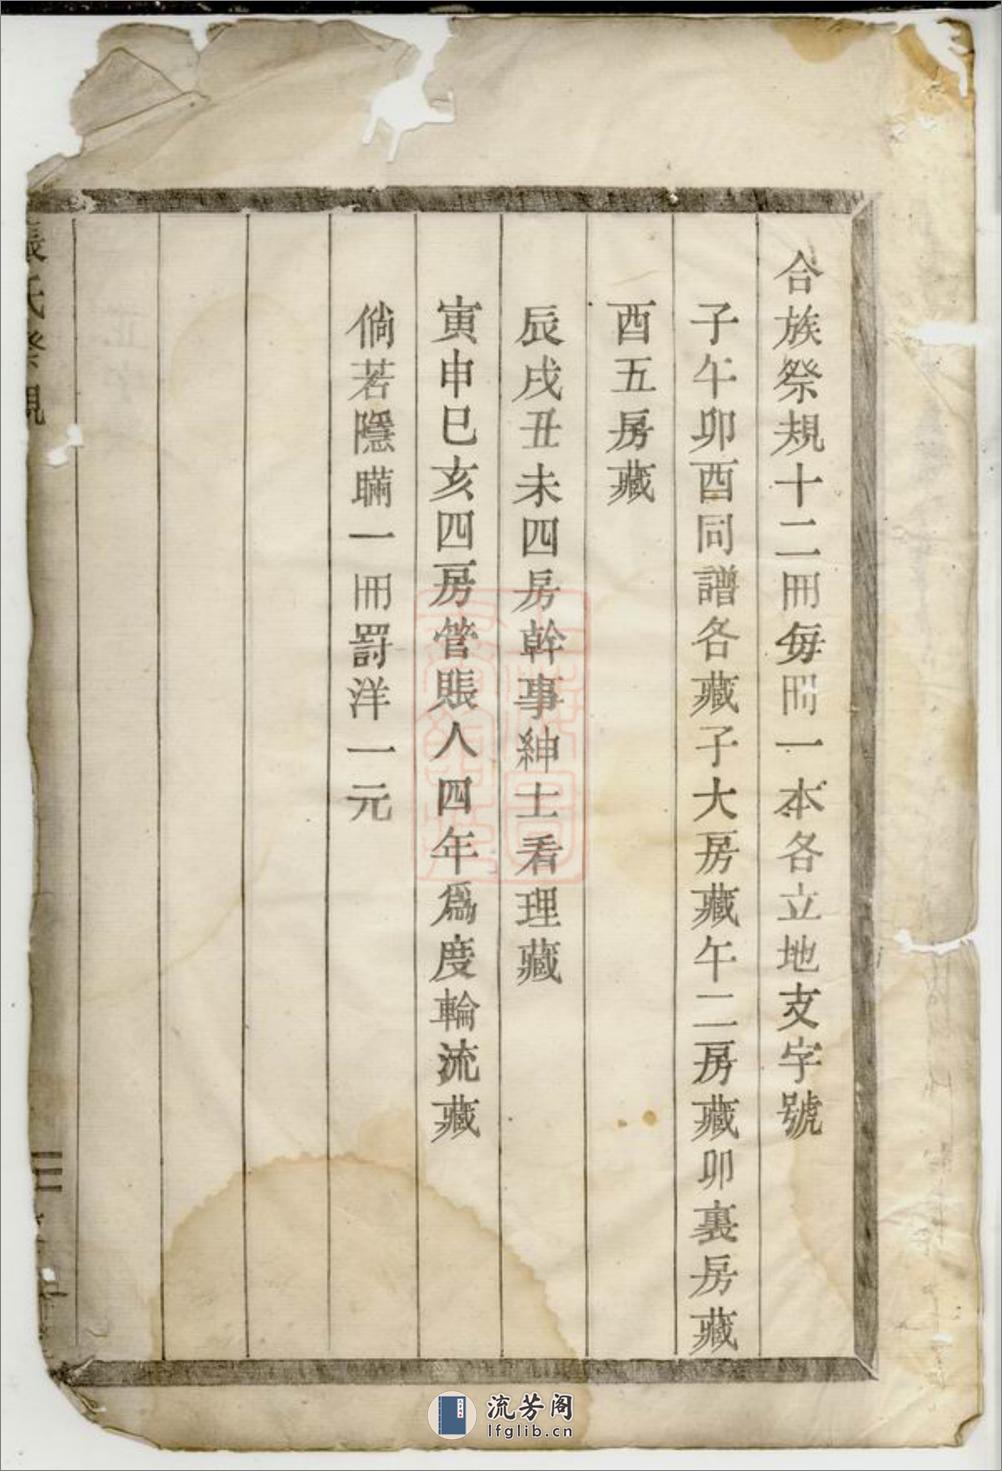 合族祭規十二冊每冊一本各立地支字號
子午卯酉同譜各藏子大房藏午二房藏卯裏房藏
酉五房藏
辰戌丑未四房幹事紳士看理藏
寅申巳亥四房管賬人四年爲度輪流藏
倘若隱瞞一冊罰洋一元
張氏祭規
流芳阁
lfglib.cn